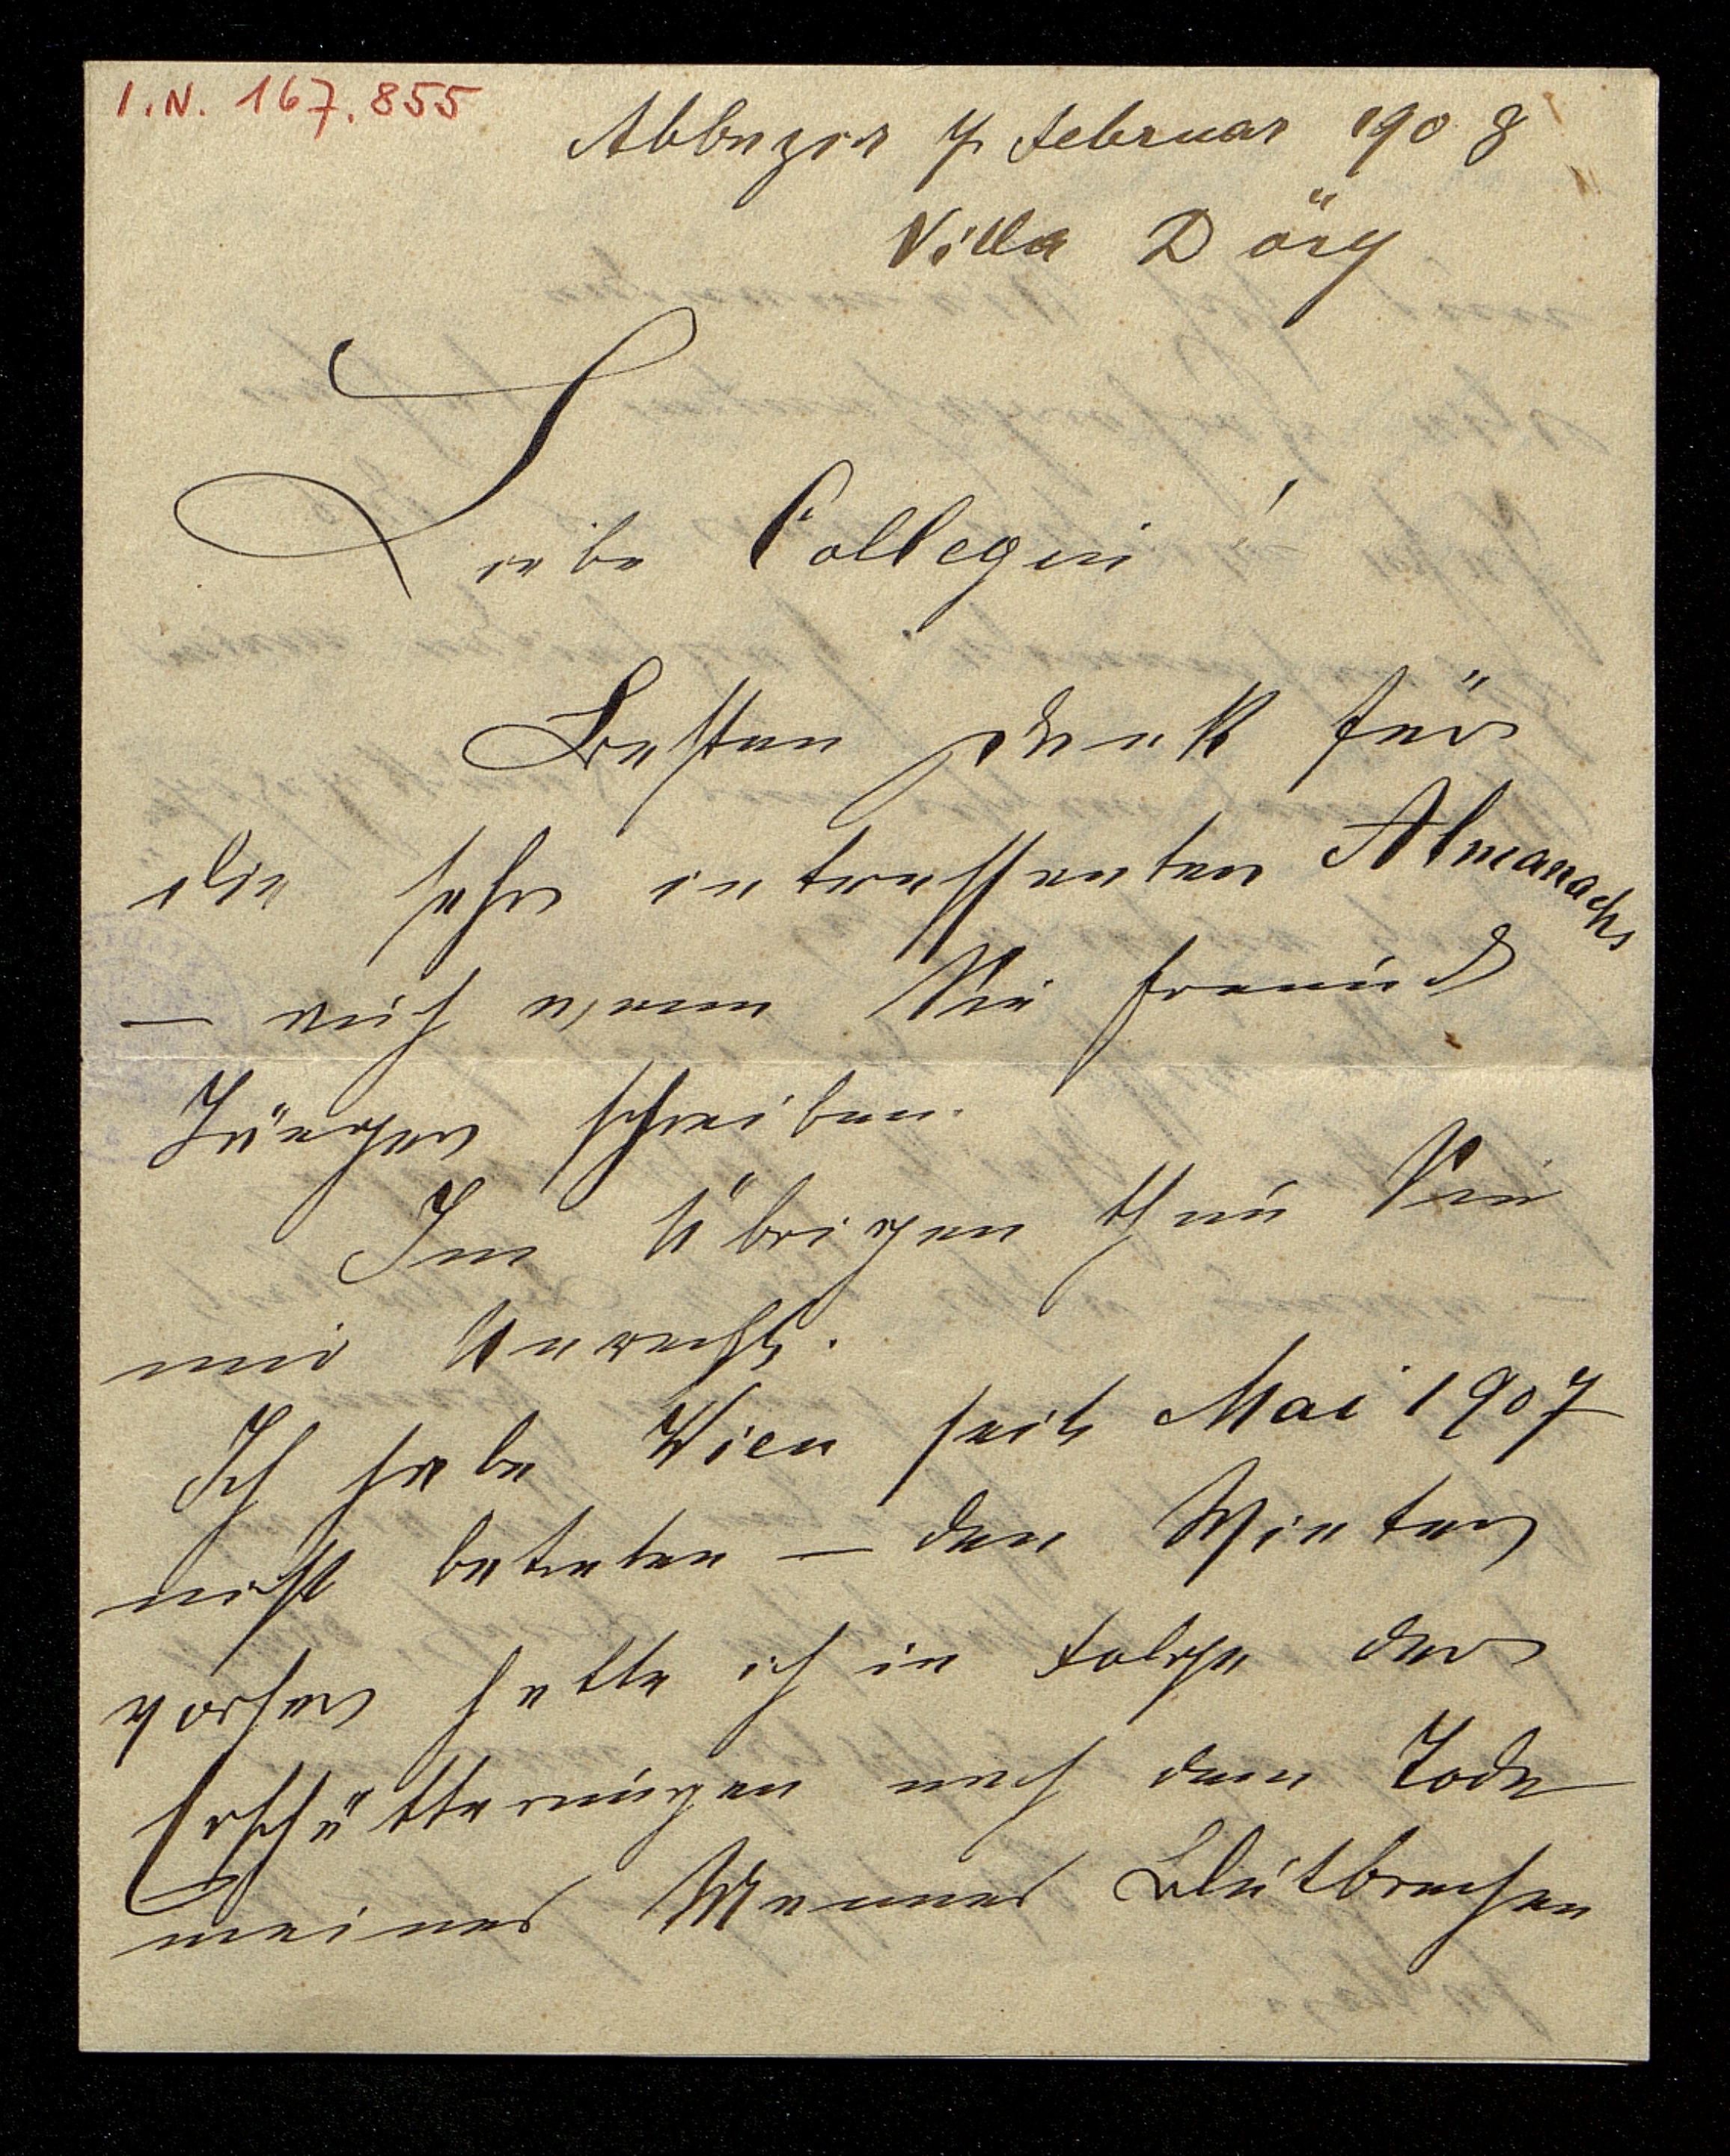 I.N. 167.855
Abbazia 7 Februar 1908
Villa Döry
Liebe Collegin!
Besten Dank für
die sehr intressanten Almanachs
– auch wenn Sie Freund
Jünger schreiben.
Im Übrigen thun Sie
mir Unrecht.
Ich habe Wien seit Mai 1907
nicht betreten – den Winter
vorher hatte ich in Folge der
Erschütterungen nach dem Tode
meines Mannes Blutbrechen